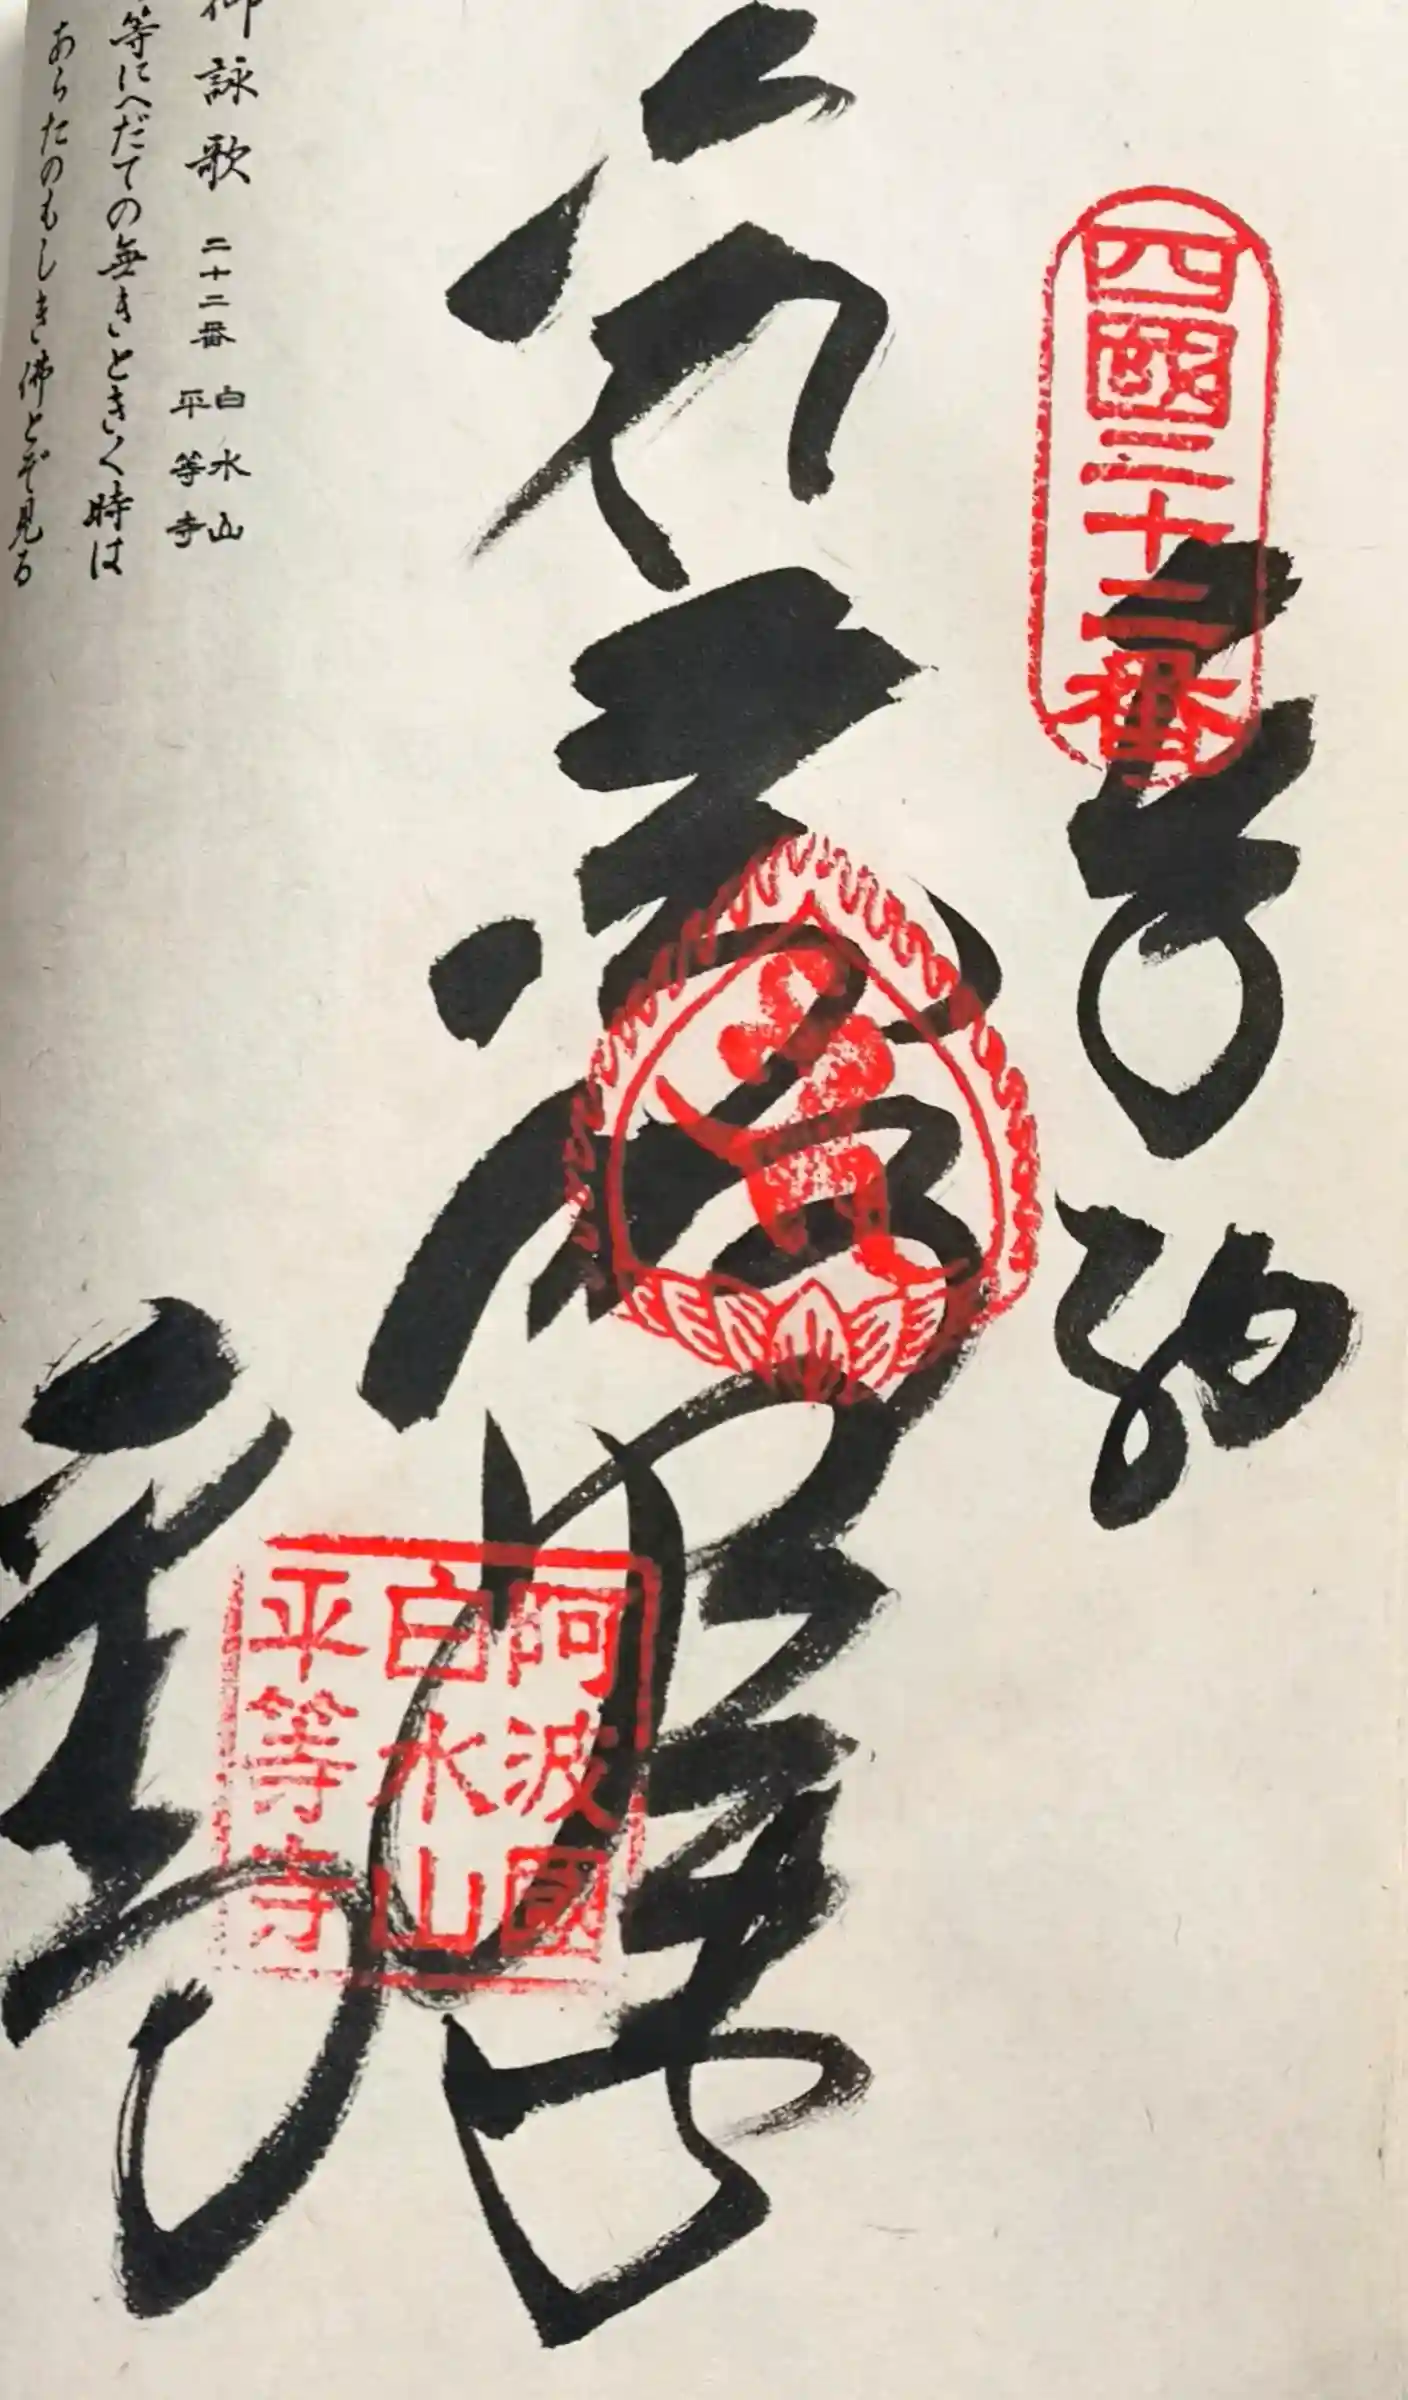 四國二十二番
奉納
阿波國
白水山
平等寺
平等寺
御詠歌 二十二番 白水山
平等寺
等にへだての無きときく時は
あらたのもしき佛とぞ見る